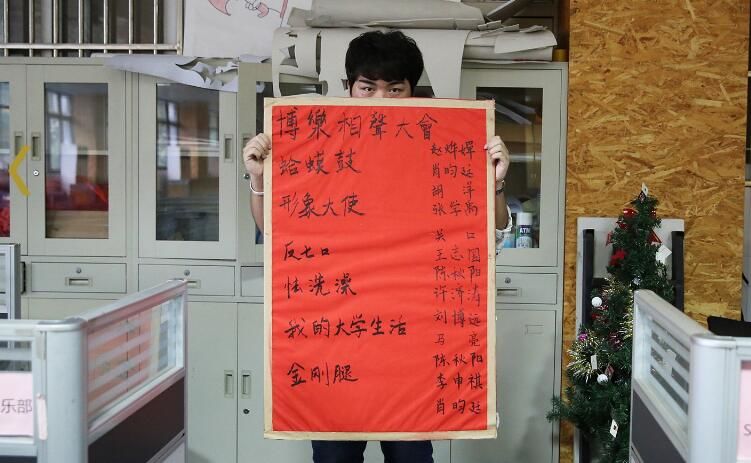 博樂相聲大會
蛤蟆鼓
形象大使
反七口
怯洗澡
我的大学生活
金刚腿
赵烨
肖昀廷
胡 洋
张学
吴
王志国
陈秋阳
许济涛
刘博远
马 亮
陈秋阳
李申祺
肖昀廷
乐部
S